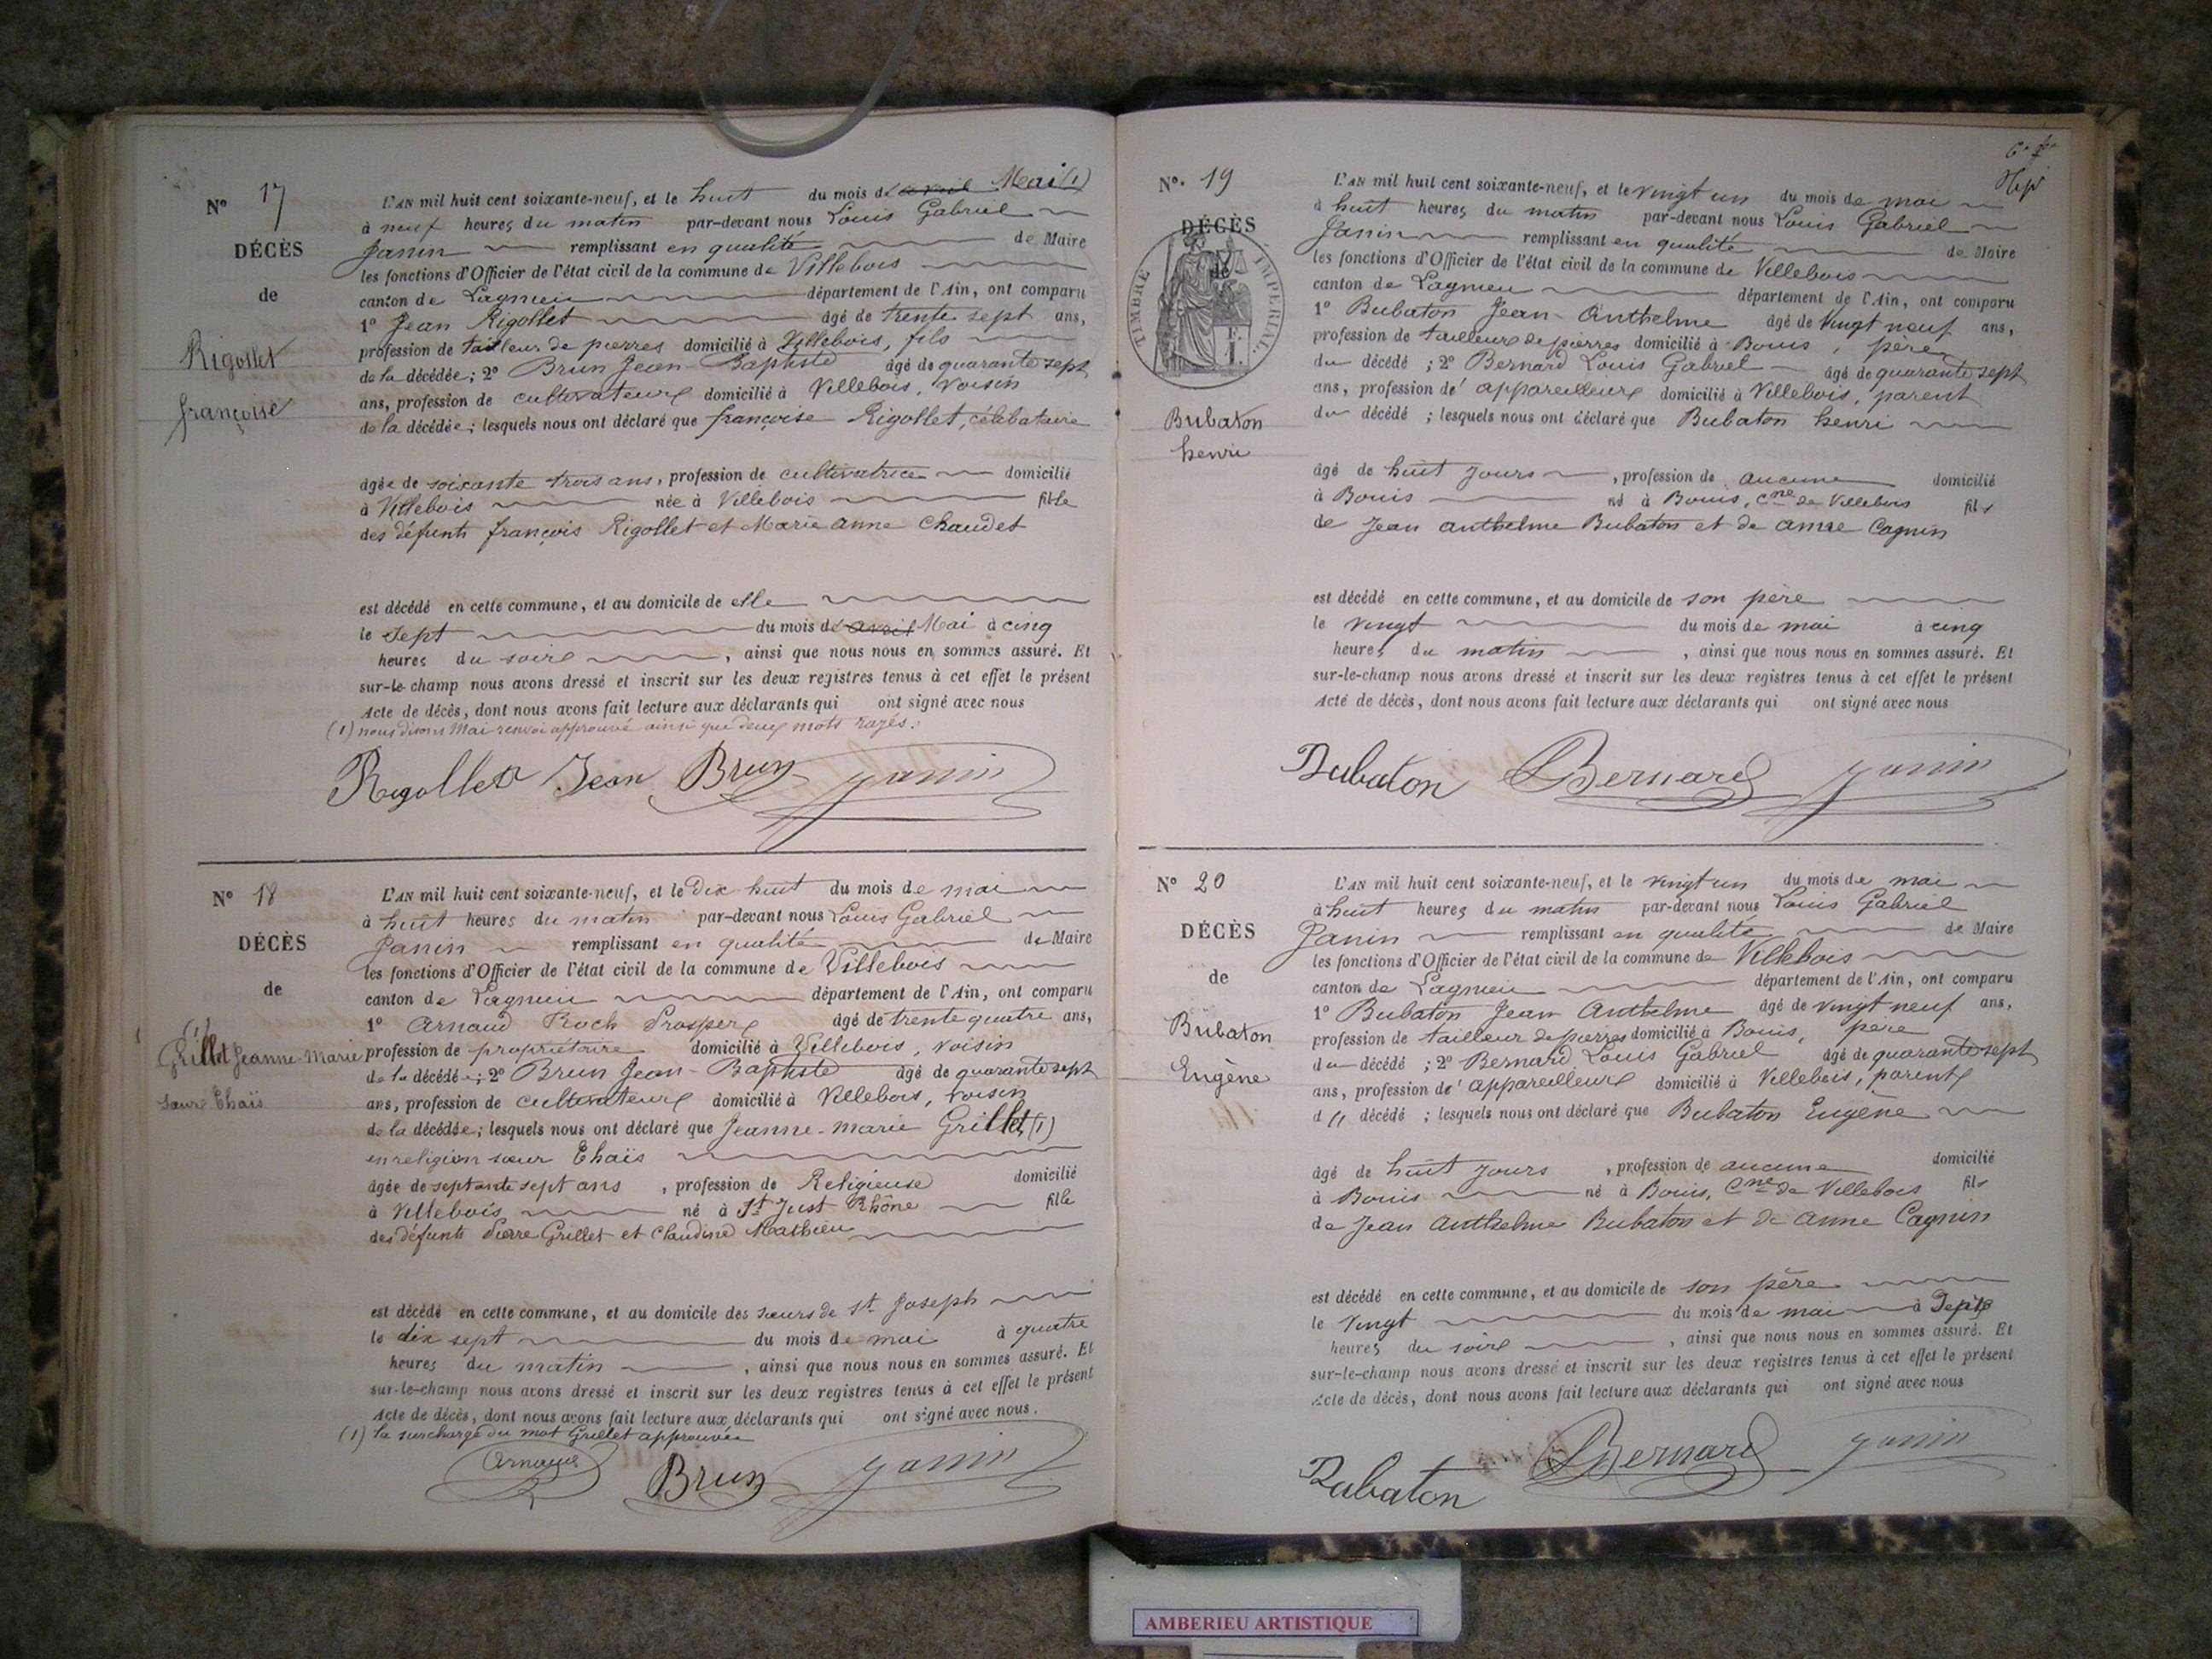 N° 17
DÉCÈS
de
Rigollet
françoise
L'AN mil huit cent soixante-neuf, et le huit du mois de avril Mai (1)
à neuf heures du matin par-devant nous Louis Gabriel
Janin remplissant en qualité de Maire
les fonctions d'Officier de l'état civil de la commune de Villebois
canton de Lagnieu département de l'Ain, ont comparu
1° Jean Rigollet âgé de trente sept ans,
profession de tailleur de pierres domicilié à Villebois, fils
de la décédée; 2° Brun Jean-Baptiste âgé de quarante sept
ans, profession de cultivateur domicilié à Villebois, voisin
de la décédée; lesquels nous ont déclaré que françoise Rigollet, célibataire
âgée de soixante trois ans, profession de cultivatrice domicilié
à Villebois née à Villebois fille
des défunts françois Rigollet et Marie anne Chaudet
est décédé en cette commune, et au domicile de elle
le sept du mois de avril Mai à cinq
heures du soir, ainsi que nous nous en sommes assuré. Et
sur-le-champ nous avons dressé et inscrit sur les deux registres tenus à cet effet le présent
Acte de décès, dont nous avons fait lecture aux déclarants qui ont signé avec nous
(1) nous disons Mai renvoi approuvé ainsi que deux mots rayés.
Rigollet Jean Brun Janin
N° 18
DÉCÈS
de
(1)
Grillet Jeanne-Marie
sœur Thaïs
L'AN mil huit cent soixante-neuf, et le Dix huit du mois de mai
à huit heures du matin par-devant nous Louis Gabriel
Janin remplissant en qualité de Maire
les fonctions d'Officier de l'état civil de la commune de Villebois
canton de Lagnieu département de l'Ain, ont comparu
1° Arnaud Roch Prosper âgé de trente quatre ans,
profession de propriétaire domicilié à Villebois, voisin
de la décédée; 2° Brun Jean-Baptiste âgé de quarante sept
ans, profession de cultivateur domicilié à Villebois, voisin
de la décédée; lesquels nous ont déclaré que Jeanne-marie Grillet (1)
en religion sœur Thaïs
âgée de septante sept ans, profession de Religieuse domicilié
à Villebois né à St Just Rhône fille
des défunts Pierre Grillet et Claudine Mathieu
est décédé en cette commune, et au domicile des sœurs de St Joseph
le dix sept du mois de mai à quatre
heures du matin, ainsi que nous nous en sommes assuré. Et
sur-le-champ nous avons dressé et inscrit sur les deux registres tenus à cet effet le présent
Acte de décès, dont nous avons fait lecture aux déclarants qui ont signé avec nous.
(1) la surcharge du mot Grillet approuvée
Arnaud Brun Janin
N°. 19
DÉCÈS
de
TIMBRE IMPERIAL.
Bubaton
henri
L'AN mil huit cent soixante-neuf, et le vingt un du mois de mai
à huit heures du matin par-devant nous Louis Gabriel
Janin remplissant en qualité de Maire
les fonctions d'Officier de l'état civil de la commune de Villebois
canton de Lagnieu département de l'Ain, ont comparu
1° Bubaton Jean-Anthelme âgé de vingt neuf ans,
profession de tailleur de pierres domicilié à Bouis, père
du décédé; 2° Bernard Louis Gabriel âgé de quarante sept
ans, profession d'appareilleur domicilié à Villebois, parent
du décédé; lesquels nous ont déclaré que Bubaton henri
âgé de huit jours, profession de aucune domicilié
à Bouis né à Bouis, cne de Villebois fils
de Jean anthelme Bubaton et de anne Cagnin
est décédé en cette commune, et au domicile de son père
le vingt du mois de mai à cinq
heures du matin, ainsi que nous nous en sommes assuré. Et
sur-le-champ nous avons dressé et inscrit sur les deux registres tenus à cet effet le présent
Acte de décès, dont nous avons fait lecture aux déclarants qui ont signé avec nous
Bubaton Bernard Janin
N° 20
DÉCÈS
de
Bubaton
Eugène
L'AN mil huit cent soixante-neuf, et le vingt un du mois de mai
à huit heures du matin par-devant nous Louis Gabriel
Janin remplissant en qualité de Maire
les fonctions d'Officier de l'état civil de la commune de Villebois
canton de Lagnieu département de l'Ain, ont comparu
1° Bubaton Jean Anthelme âgé de vingt neuf ans,
profession de tailleur de pierres domicilié à Bouis, père
du décédé; 2° Bernard Louis Gabriel âgé de quarante sept
ans, profession d'appareilleur domicilié à Villebois, parent
du décédé; lesquels nous ont déclaré que Bubaton Eugène
âgé de huit jours, profession de aucune domicilié
à Bouis né à Bouis, Cne de Villebois fils
de Jean Anthelme Bubaton et de anne Cagnin
est décédé en cette commune, et au domicile de son père
le vingt du mois de mai à Sept
heures du soir, ainsi que nous nous en sommes assuré. Et
sur-le-champ nous avons dressé et inscrit sur les deux registres tenus à cet effet le présent
Acte de décès, dont nous avons fait lecture aux déclarants qui ont signé avec nous
Bubaton Bernard Janin
AMBERIEU ARTISTIQUE